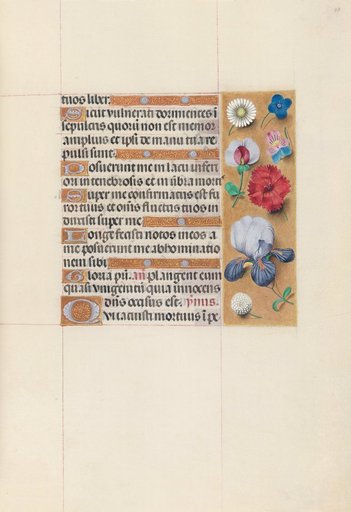 tuos liber.
Sicut vulnerati dormientes ī
sepulcris quorū non est memor
amplius et ip̄i de manu tua re
pulsi sunt.
Posuerunt me in lacu inferi
ori in tenebrosis et in ūbra mortꝭ
Super me confirmatus est fu
ror tuus et om̄s fluctus tuos in
duxisti super me
Longe fecisti notos meos a
me posuerunt me abhominatio
nem sibi
Gloria pri. añ plangent eum
quasi unigenitū quia innocens
dn̄s occisus est. p̄mis.
Qui tacuisti mortuus ī pe